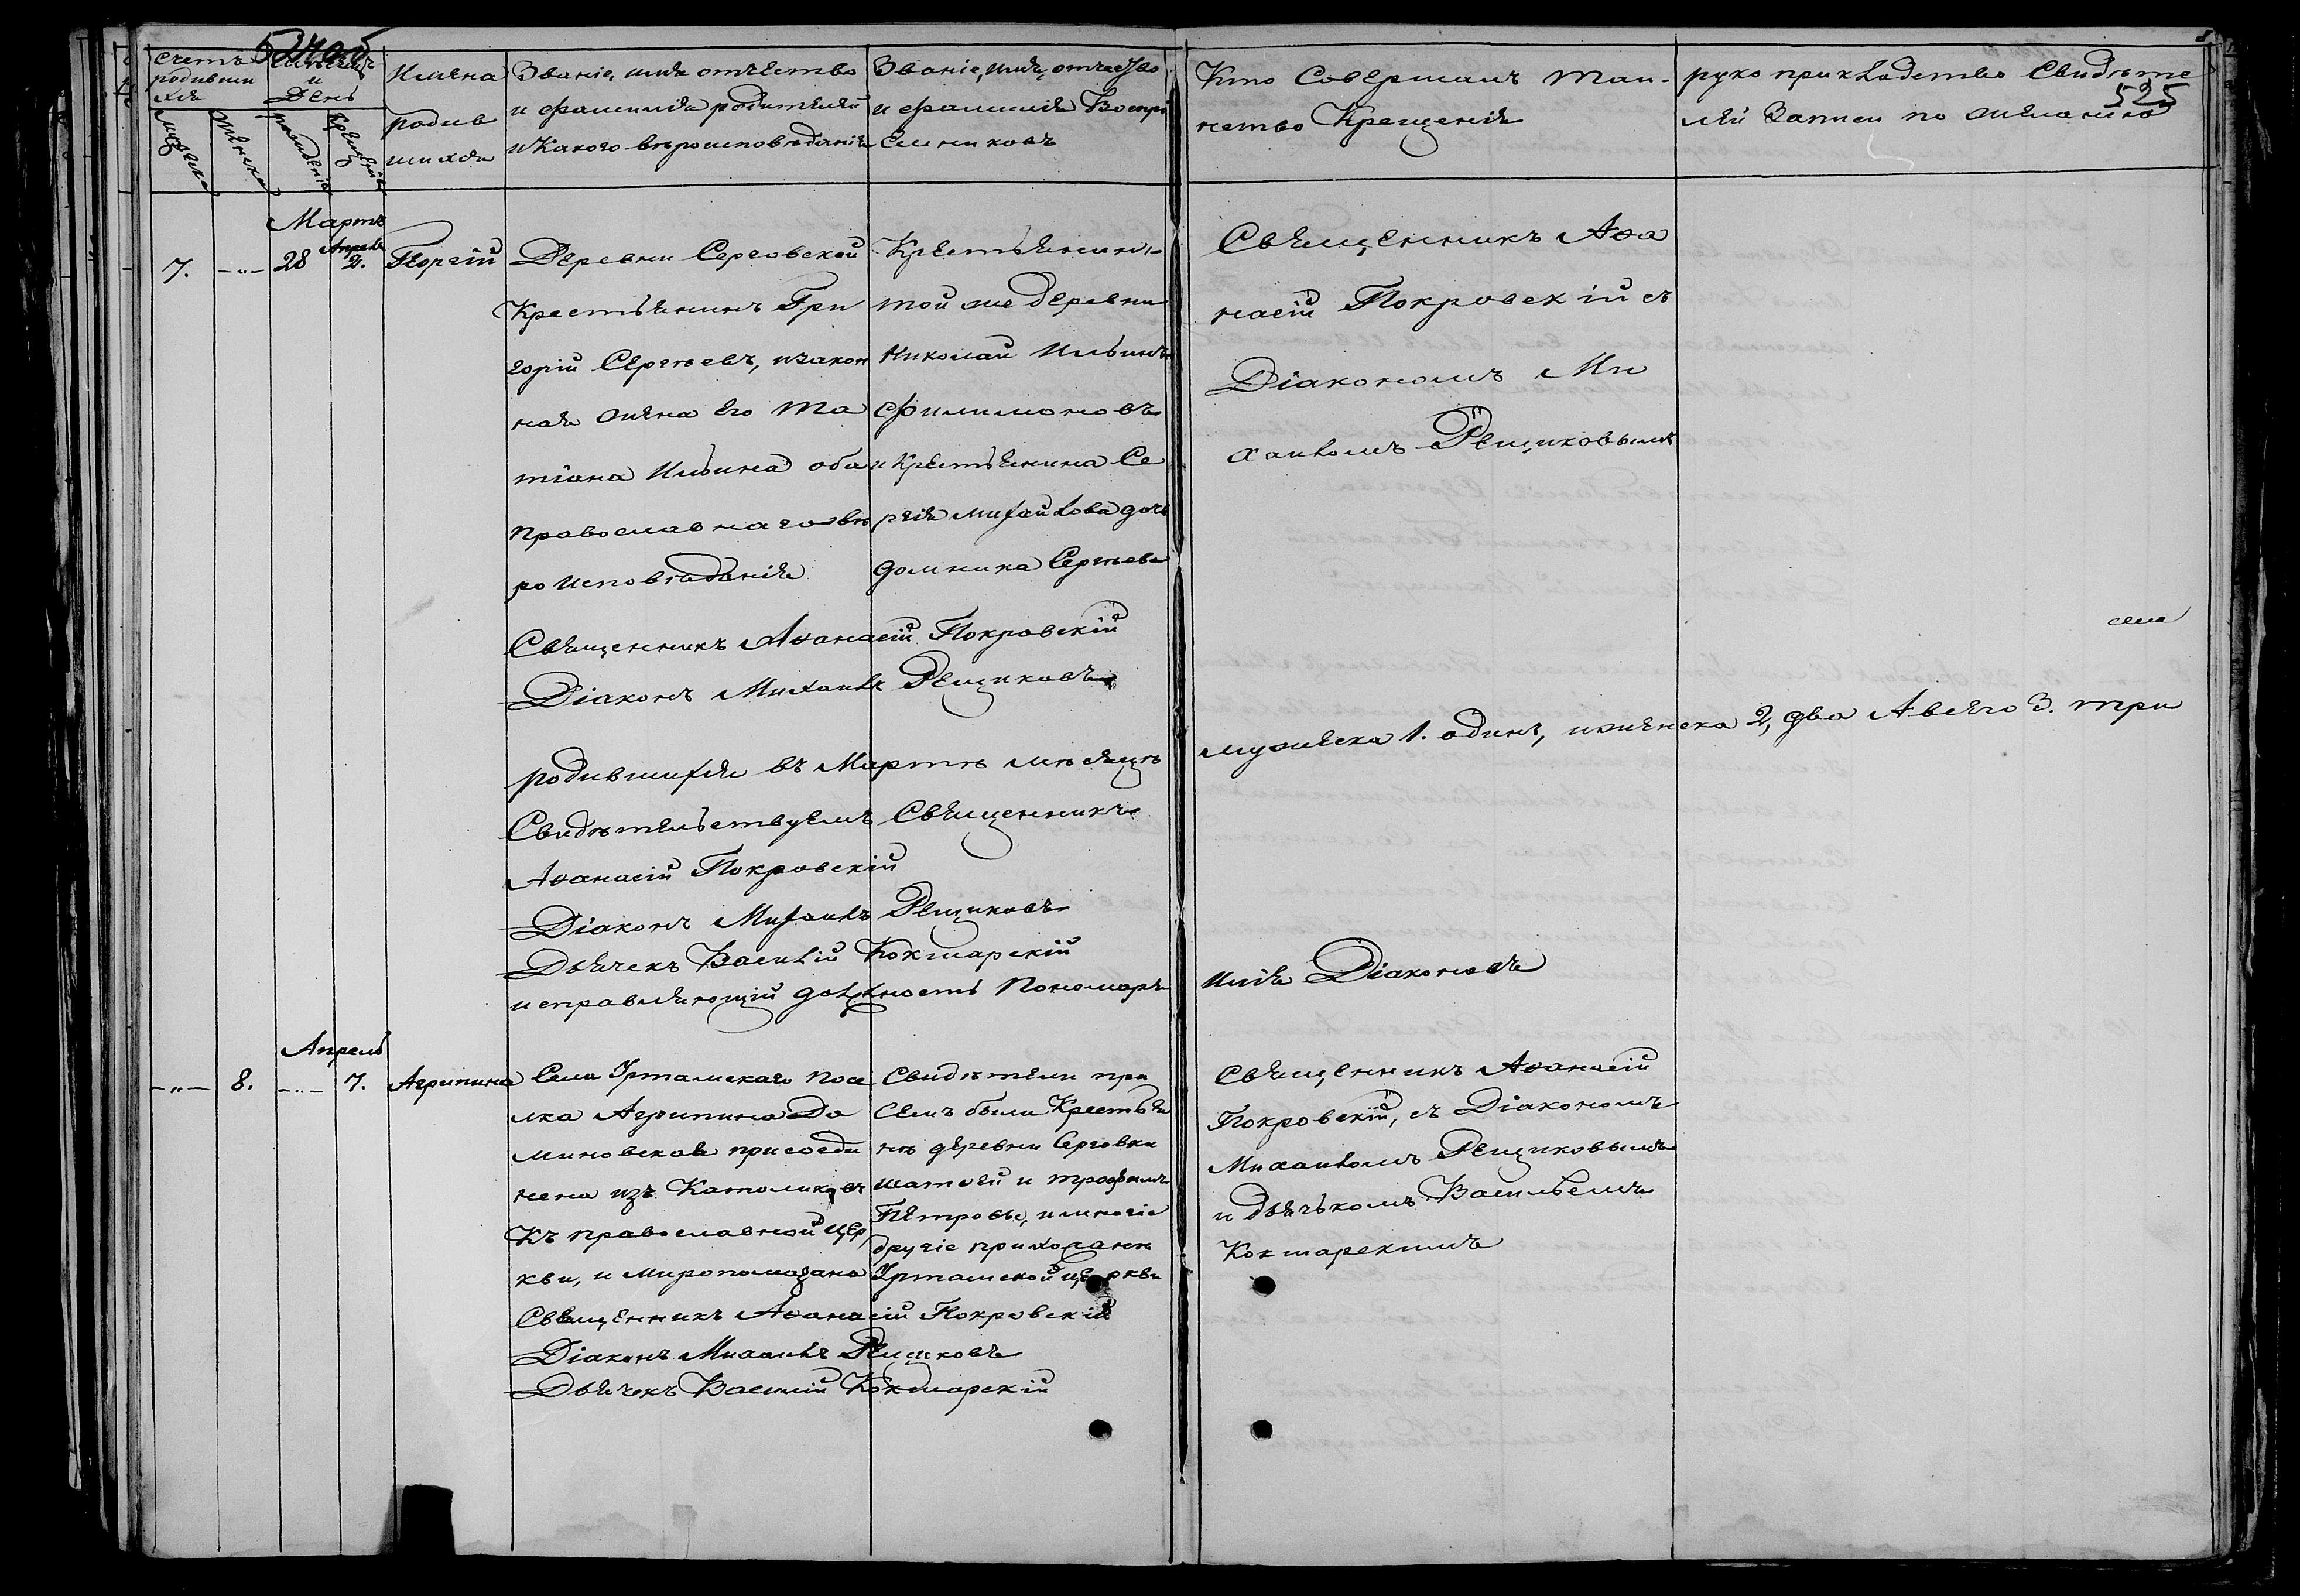 524 об
525
Счетъ родившихся
Мѣсяцъ и День
Мужеска
Женска
рожденія
Крещенія
Имена
родив
шихся
Званіе, имя отчество
и фамилія родителей
и Какого вѣроисповѣданія
Званіе, имя, отчество
и фамилія Воспрі
емниковъ
Кто Совершалъ Таи-
нство Крещенія
руко прикладство Свидѣте
лей Записи по желанію
Мартъ
Апрель
7.
28
2.
Георгій
Деревни Серговской
Крестьянинъ Гри
горій Сергѣевъ, изакон
ная жена его Та
тіана Ильина оба
Православнаго вѣ
роисповѣданія
Крестьянинъ
той же деревни
Николай Ильинъ
Филимоновъ
и Крестьянина Се
ргія Михайлова дочь
Домника Сергѣева
Священникъ Афа
насій Покровскій съ
Діакономъ Ми
хаиломъ Рещиковымъ
Священникъ Афанасій Покровскій
Діаконъ Михаилъ Рещиковъ
родившихся въ Мартѣ мѣсяцѣ
мужеска 1. одинъ, иженска 2, два Авсего 3. три
Свидѣтельствуемъ Священникъ
Афанасій Покровскій
Діаконъ Михаилъ Рещиковъ
Дьячекъ Василій Кокшарскій
исправляющій должность Пономаря
Илія Діаконовъ
Апрель
8.
7.
Агрипина
Села Уртамскаго посе
лка Агрипина До
миновская присоеди
нена изъ Католиковъ
Къ православной цер
кви, и миропомазана
Свидѣтели при
семъ были Крестья
нѣ деревни Серговки
матѳей и трофимъ
Петровы, и многіе
другіе прихожанѣ
Уртамской церкви
Священникъ Афанасій
Покровскій, съ Діакономъ
Михаиломъ Рещиковымъ
и дьячькомъ Васильемъ
Кокшарскимъ
Священникъ Афанасій Покровскій
Діаконъ Михаилъ Рещиковъ
Дьячекъ Василій Кокшарскій